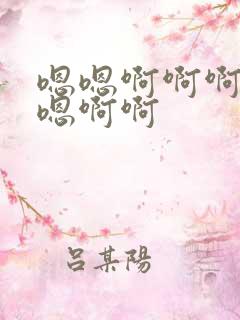 嗯嗯啊啊啊
嗯啊啊
吕某陽